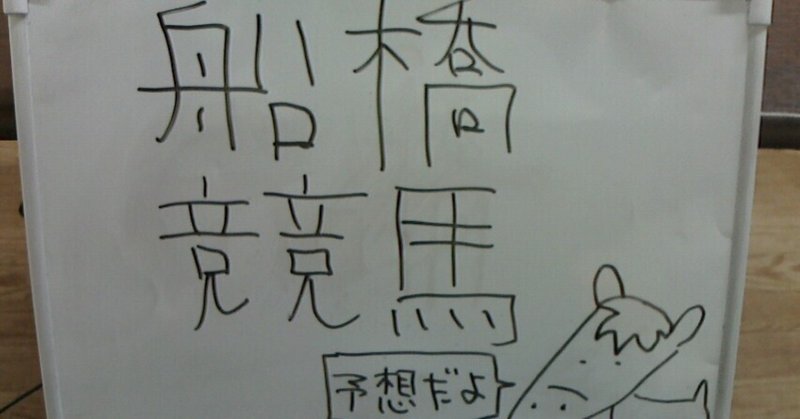 船橋
競馬
予想だよ